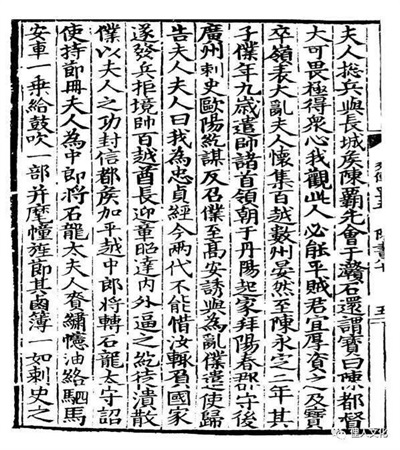 夫人揔兵與長城侯陳霸先會于灨石還謂寶曰陳都督
大可畏極得衆心我觀此人必能平賊君宜厚資之及寶
卒嶺表大亂夫人懷集百越數州晏然至陳永定二年其
子僕年九歲遣帥諸首領朝于丹陽起家拜陽春郡守後
廣州刺史歐陽紇謀反召僕至高安誘與爲亂僕遣使歸
告夫人夫人曰我爲忠貞經今兩代不能惜汝輒負國家
遂發兵拒境帥百越酋長迎章昭達内外逼之紇徒潰散
僕以夫人之功封信都侯加平越中郎將轉石龍太守詔
使持節冊夫人爲中郎將石龍太夫人賚繡幰油絡駟馬
安車一乘給鼓吹一部并麾幢旌節其鹵簿一如刺史之
俚人文化